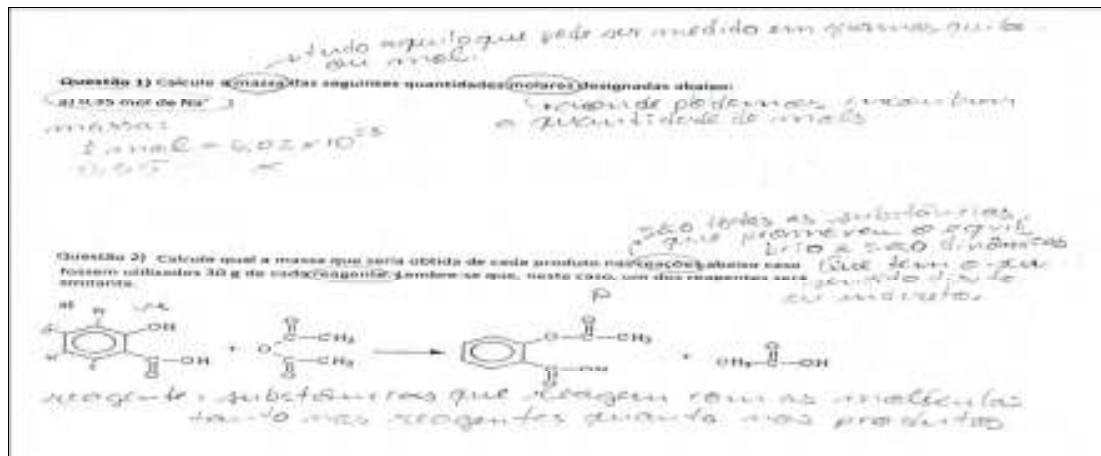 tudo aquilo que pode ser medido em
ou mol.
Questão 1) Calcule a massa das seguintes quantidades molares designadas abaixo:
a) 0,35 mol de Na⁺
onde podemos encontrar
a quantidade de mols
massa:
1 mol = 6,02 x 10²³
x
são todas as substâncias,
que promovem o
e são dinâmicas
Questão 2) Calcule qual a massa que seria obtida de cada produto nas reações abaixo caso
fossem utilizados 30 g de cada reagente. Lembre-se que, neste caso, um dos reagentes será
limitante.
Que tem o
ou indireto.
a)
OH
OH
O
+
O
O
CH₃
CH₃
O
P
O
O
CH₃
OH
O
+
CH₃
O
OH
reagente: substâncias que reagem com as moléculas
tanto nas reagentes quanto nos produtos